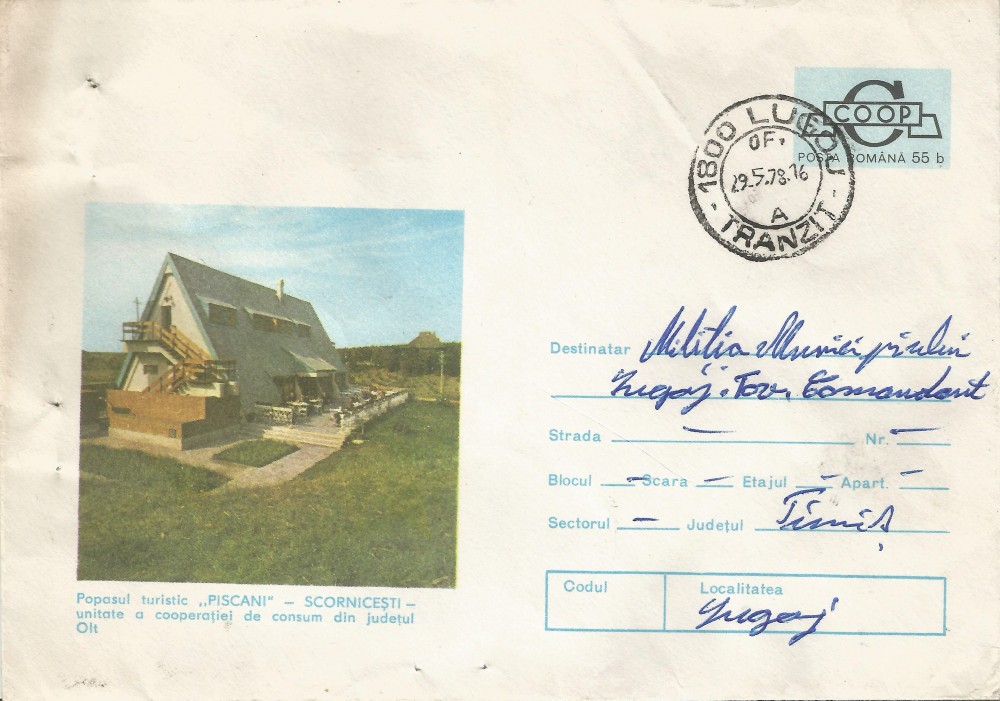 COOP
POȘTA ROMÂNĂ 55 b
1800 LUGOJ
OF.
29.5.78.16
A
- TRANZIT -
Destinatar Miliția Municipiului
Lugoj. Tov. Comandant
Strada — Nr. —
Blocul — Scara — Etajul — Apart. —
Sectorul — Județul Timiș
Codul Localitatea
Lugoj
Popasul turistic ,,PISCANI" – SCORNICEȘTI –
unitate a cooperației de consum din județul
Olt